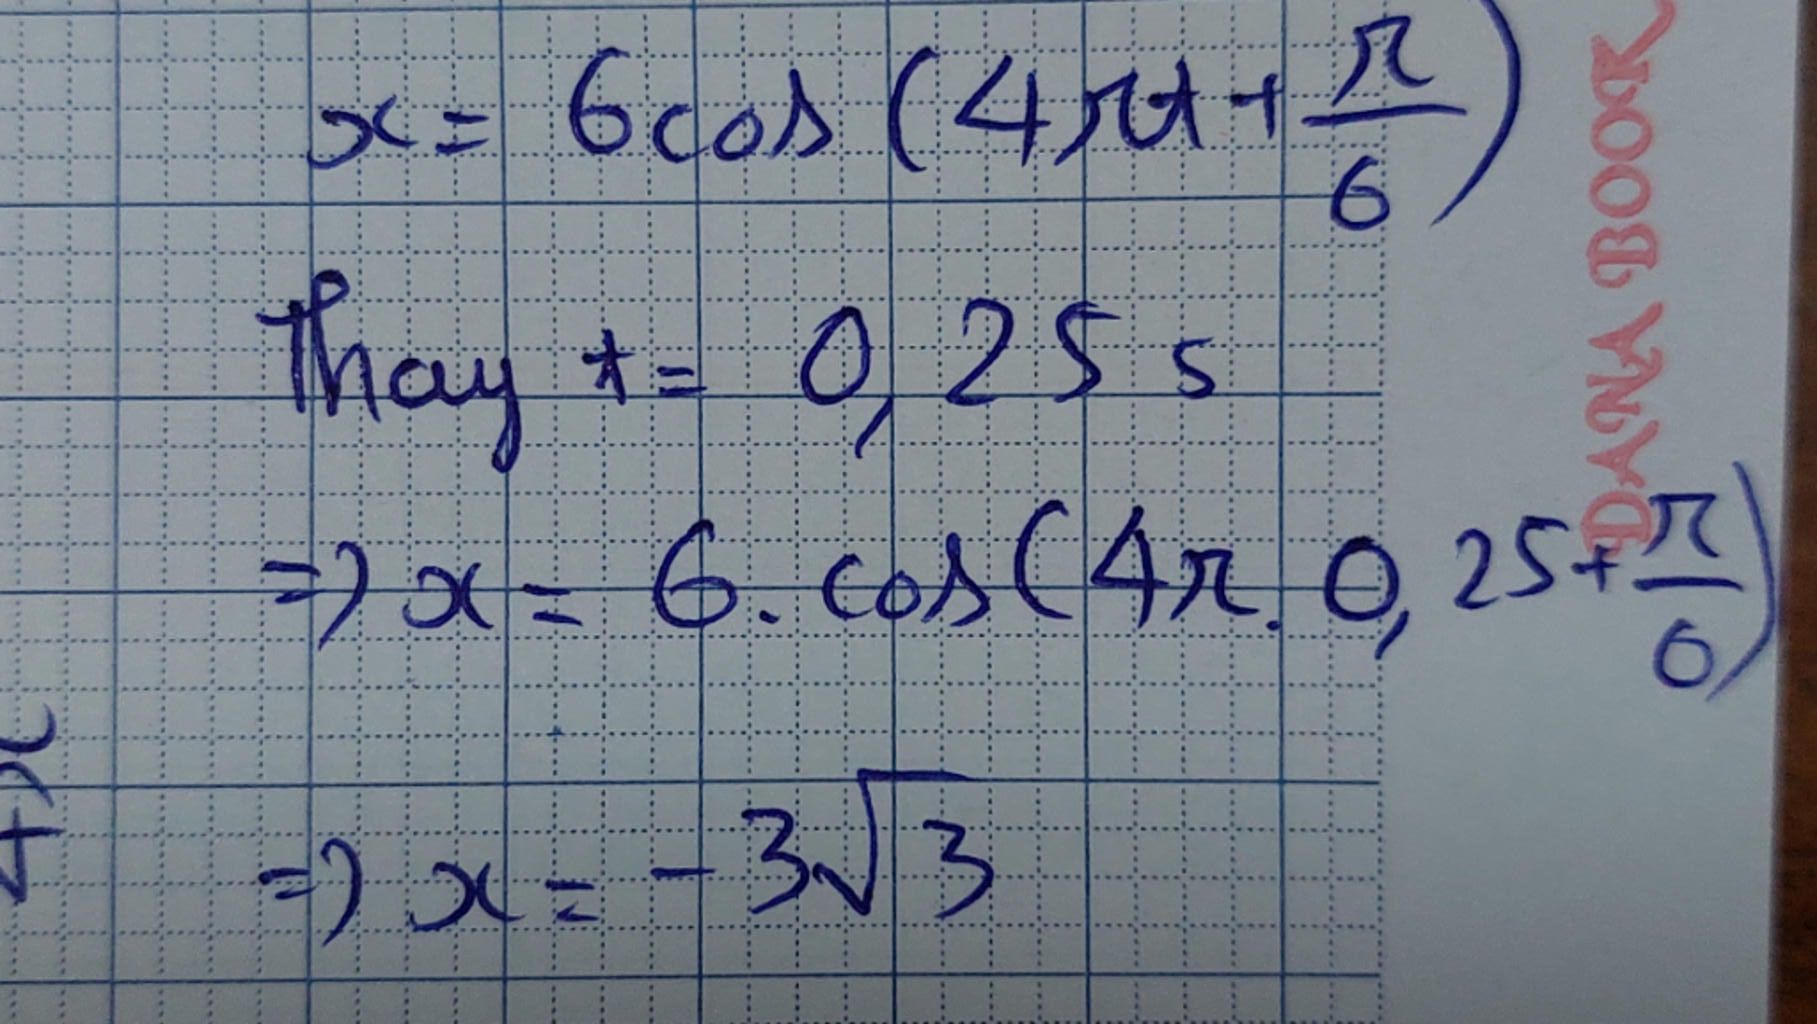 x = 6cos(4πt + π/6)
Thay t = 0,25 s
=> x = 6. cos(4π. 0,25 + π/6)
=> x = -3√3
DANA BOOK